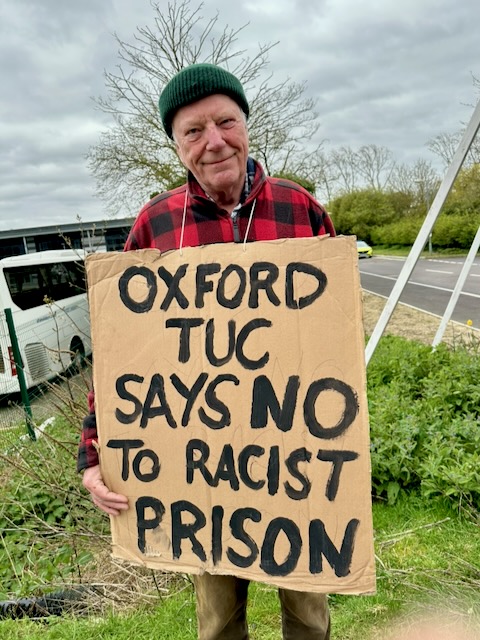 OXFORD
TUC
SAYS NO
TO RACIST
PRISON